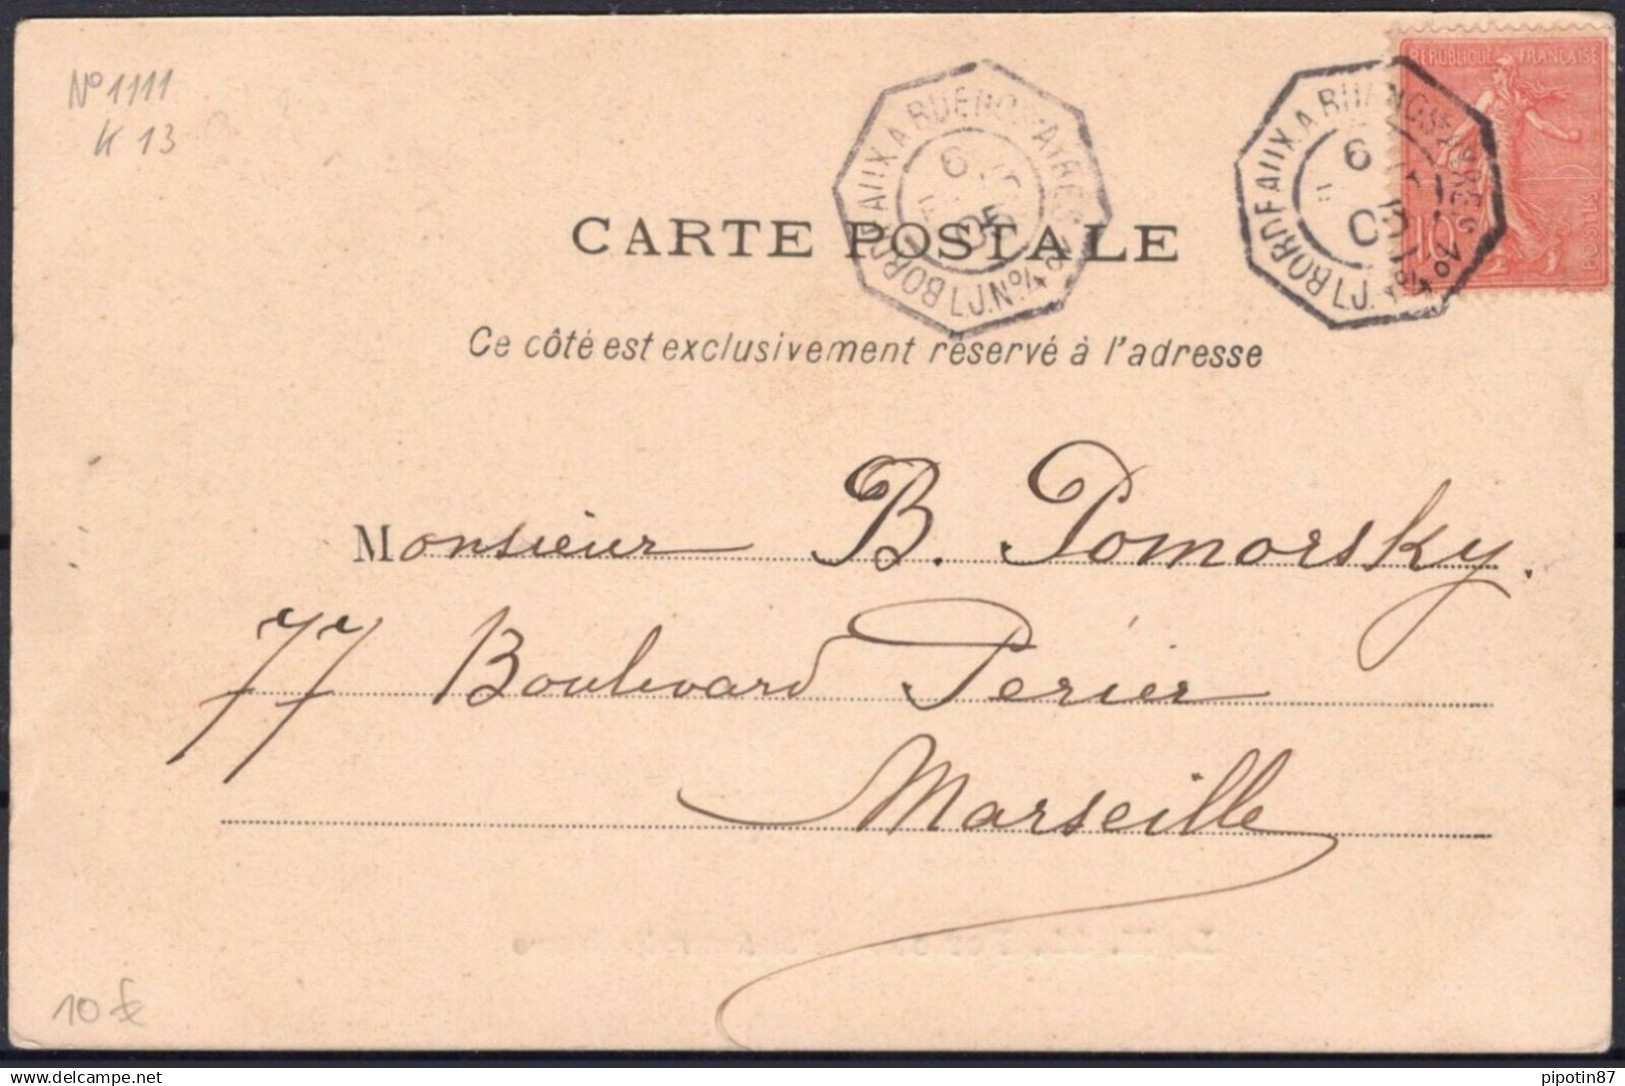 No 1111
K 13
REPUBLIQUE FRANÇAISE
10
POSTES
BORDEAUX A BUENOS-AYRES
L.J.N°4
6
05
BORDEAUX A BUENOS-AYRES
L.J.N°4
6
05
CARTE POSTALE
Ce côté est exclusivement réservé à l'adresse
Monsieur B. Pomorsky.
77 Boulevard Périer
Marseille
10 €
www.delcampe.net
pipotin87